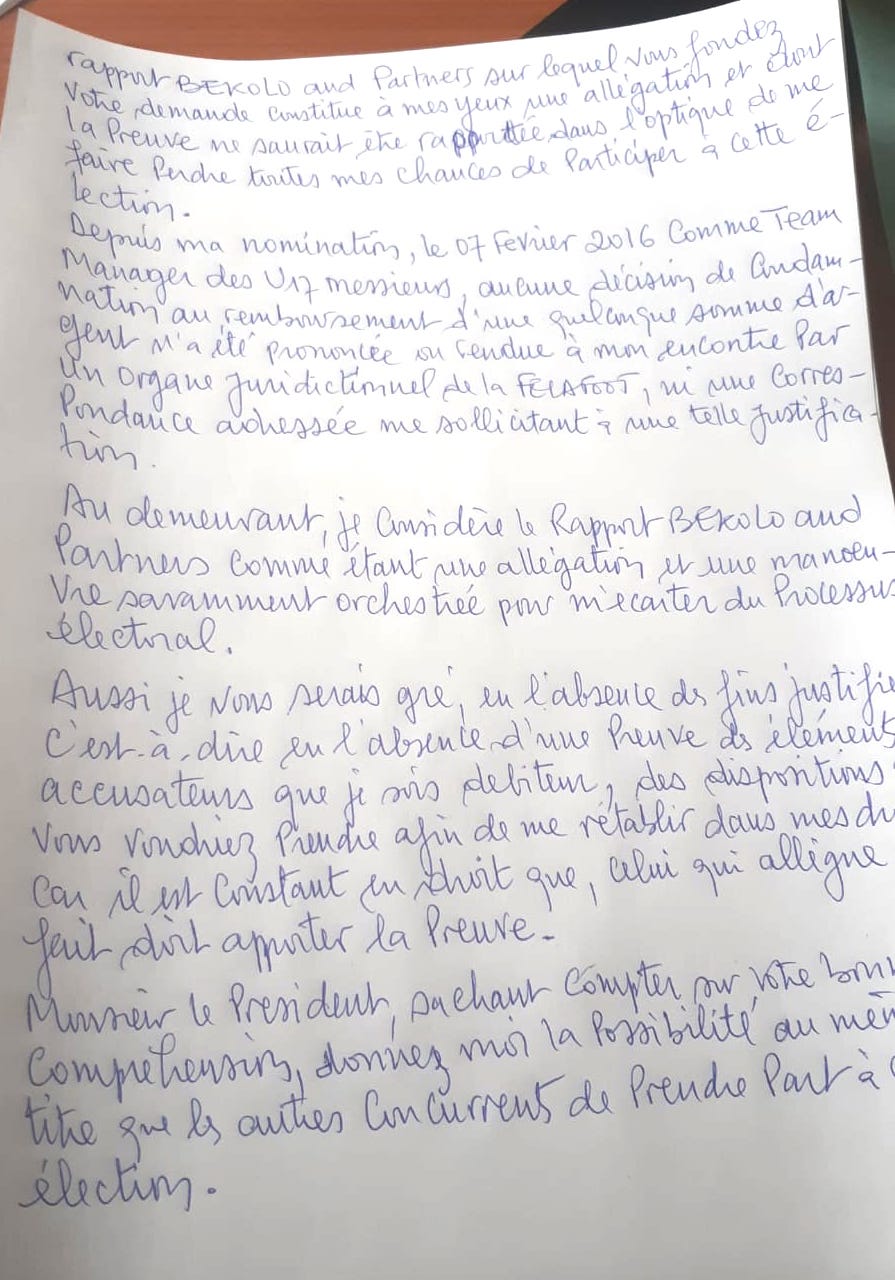 rapport BEKOLO and Partners sur lequel vous fondez
Votre demande constitue à mes yeux une allégation et dont
la Preuve ne saurait être rapportée dans l'optique de me
faire Perdre toutes mes chances de Participer à cette é-
lection.
Depuis ma nomination, le 07 Fevrier 2016 Comme Team
Manager des U17 messieurs, aucune décision de Condam-
nation au remboursement d'une quelconque somme d'ar-
gent n'a été prononcée ou rendue à mon encontre Par
un organe juridictionnel de la FECAFOOT, ni une Corres-
Pondance adressée me sollicitant à une telle justifica-
tion.
Au demeurant, je Considère le Rapport BEKOLO and
Partners Comme étant une allégation et une manoeu-
vre savamment orchestrée pour m'ecarter du Processus
électoral.
Aussi je vous serais gré, en l'absence des fins justifie
C'est-à-dire en l'absence d'une Preuve des éléments
accusateurs que je suis debiteur, des dispositions
Vous voudriez Prendre afin de me rétablir dans mes
Car il est Constant en droit que, celui qui allègue
fait doit apporter la Preuve.
Monsieur le President, sachant Compter sur votre
Compréhension, donnez moi la Possibilité au
titre que les autres Concurrents de Prendre Part à
élection.